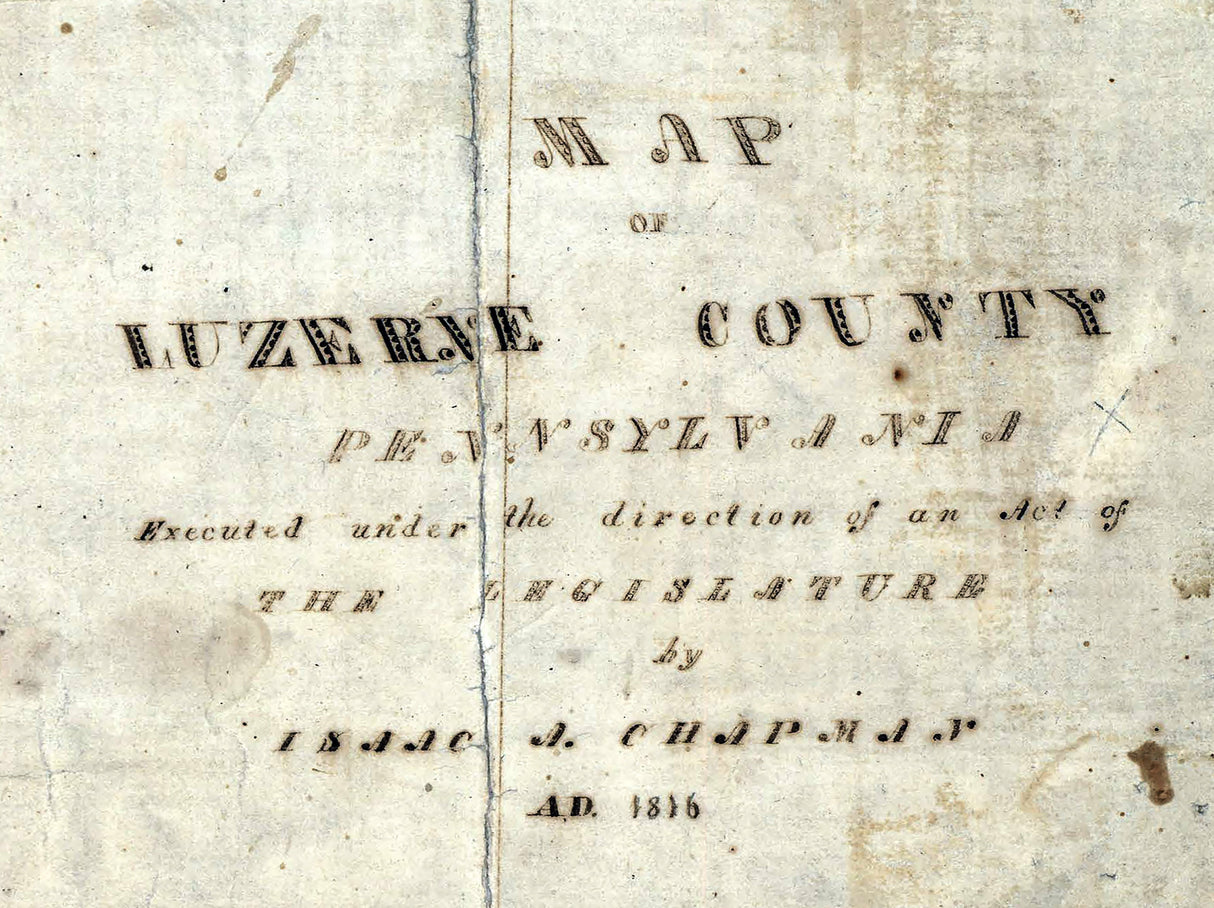 MAP
OF
LUZERNE COUNTY
PENNSYLVANIA
Executed under the direction of an Act of
THE LEGISLATURE
by
ISAAC A. CHAPMAN
AD. 1816